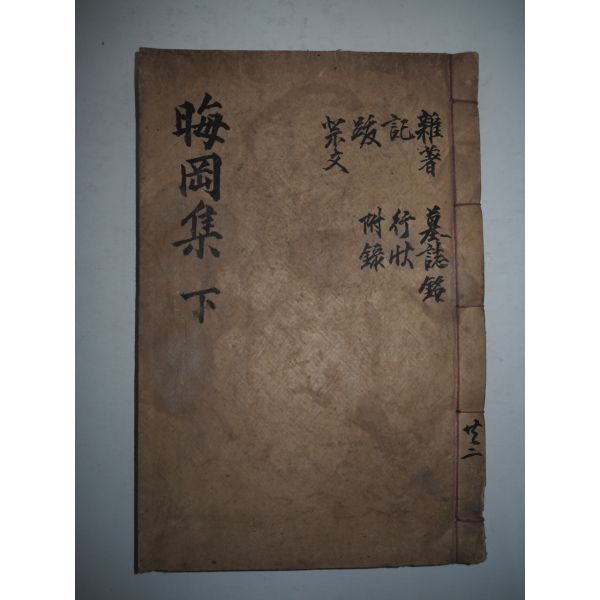 雜著
記
跋
祭文
墓誌銘
行狀
附錄
晦岡集 下
共二